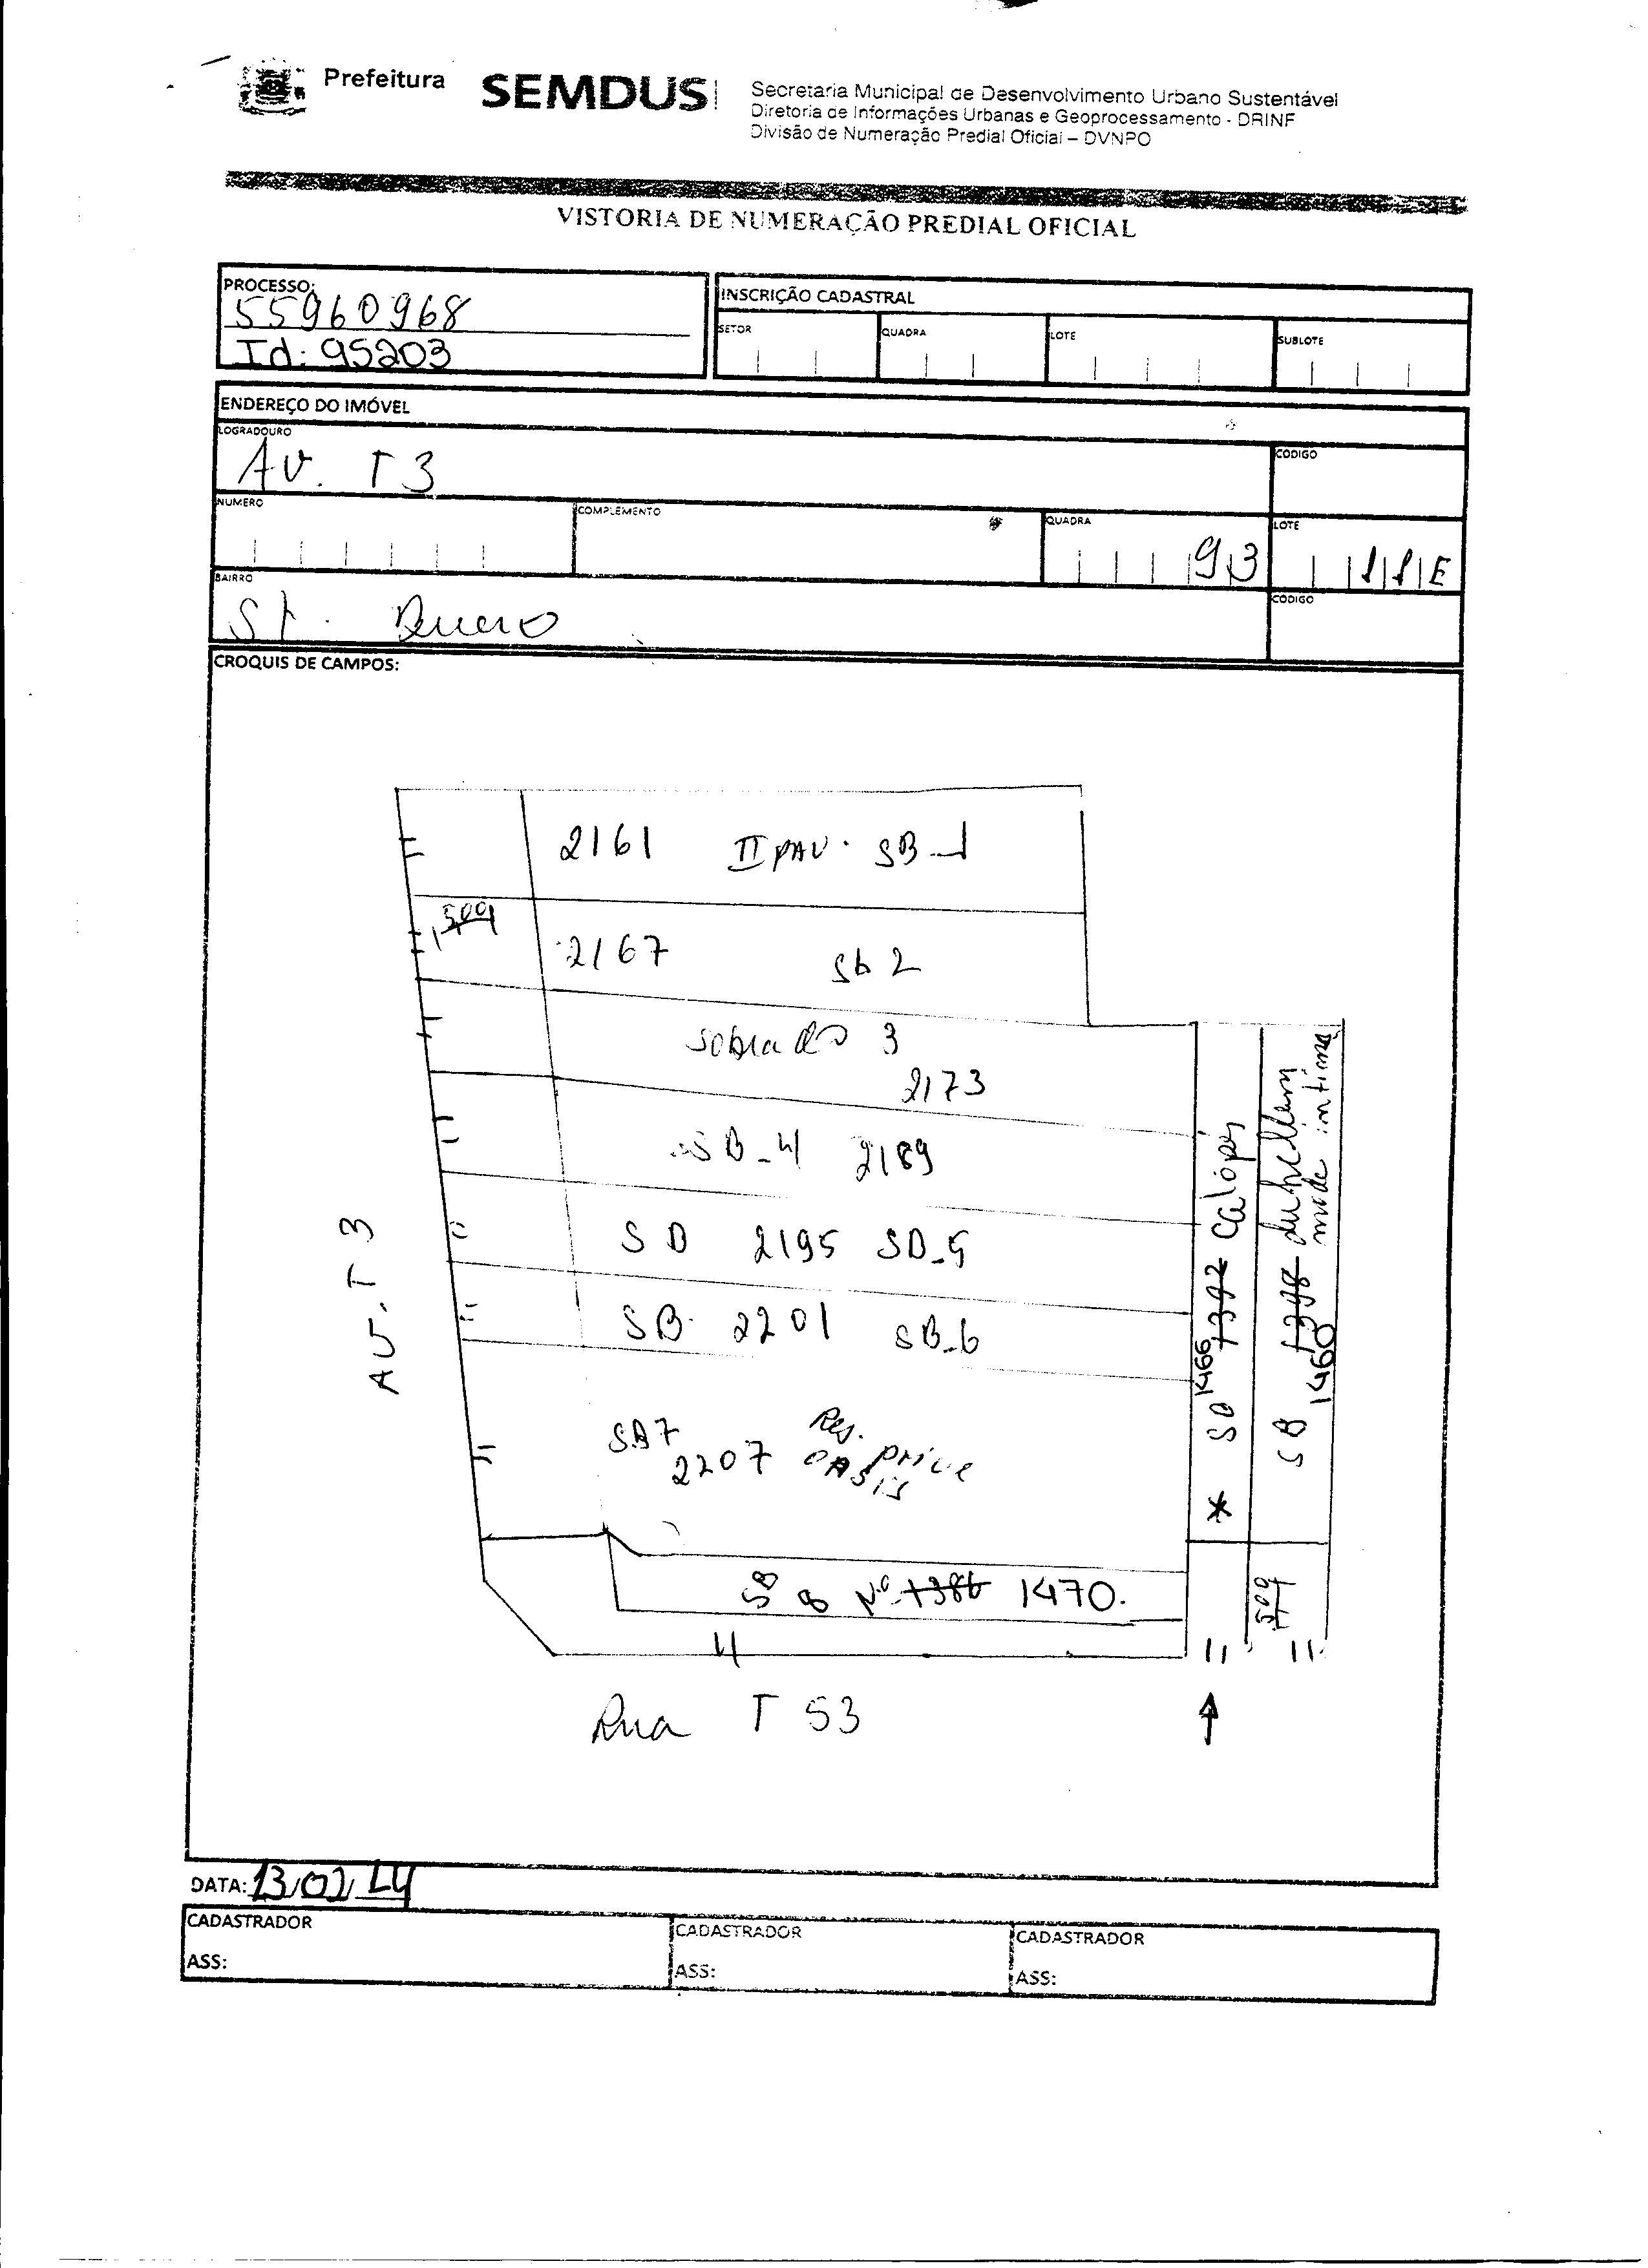 Prefeitura
SEMDUS
Secretaria Municipal de Desenvolvimento Urbano Sustentável
Diretoria de Informações Urbanas e Geoprocessamento - DRINF
Divisão de Numeração Predial Oficial – DVNPO
VISTORIA DE NUMERAÇÃO PREDIAL OFICIAL
PROCESSO:
55960968
Id: 95203
INSCRIÇÃO CADASTRAL
SETOR
QUADRA
LOTE
SUBLOTE
ENDEREÇO DO IMÓVEL
LOGRADOURO
AV. T 3
CODIGO
NUMERO
COMPLEMENTO
QUADRA
93
LOTE
11E
BAIRRO
St. Bueno
CODIGO
CROQUIS DE CAMPOS:
2161 II PAV. SB-1
2167 Sb 2
Sobrado 3
2173
SB-4 2189
SD 2195 SD-5
SB 2201 SB-6
SB7
2207 Res. prive
OASIS
SB 8 Nº 1386 1470.
AV. T 3
* SD 1466 1392 Calópsi
SB 1398 1460
moda intima
Rua T 53
DATA: 13/02/14
CADASTRADOR
ASS:
CADASTRADOR
ASS:
CADASTRADOR
ASS: